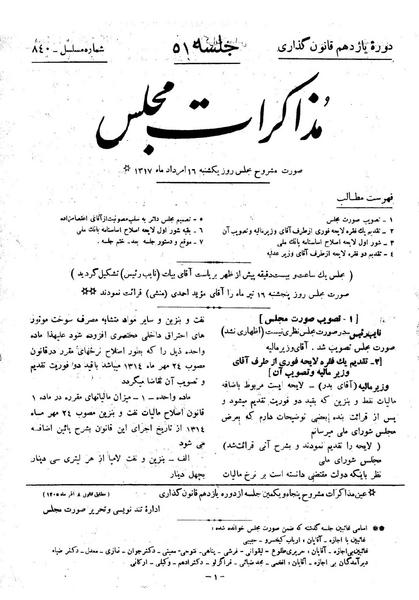 دورهٔ یازدهم قانون گذاری
جلسه ۵۱
شماره مسلسل - ۸۴۰
مذاکرات مجلس
صورت مشروح مجلس روز یکشنبه ۱۶ امرداد ماه ۱۳۱۷
فهرست مطالب
۱ - تصویب صورت مجلس
۲ - تقدیم یک فقره لایحه فوری از طرف آقای وزیر مالیه و تصویب آن
۳ - شور اول لایحه اصلاح اساسنامه بانک ملی
۴ - تقدیم دو فقره لایحه از طرف آقای وزیر عدلیه
۵ - تصمیم مجلس دائر به سلب مصونیت از آقای اعتصام زاده
۶ - بقیه شور اول لایحه اصلاح اساسنامه بانک ملی
۷ - موقع و دستور جلسه بعد - ختم جلسه .
( مجلس یک ساعت و بیست دقیقه پیش از ظهر بریاست آقای بیات (نایب رئیس) تشکیل گردید )
صورت مجلس روز پنجشنبه ۱۶ تیر ماه را آقای مؤید احمدی (منشی) قرائت نمودند
[ ۱ - تصویب صورت مجلس ]
نایب رئیس در صورت مجلس نظری نیست (اظهاری نشد)
صورت مجلس تصویب شد . آقای وزیر مالیه
[۲- تقدیم یک فقره لایحه فوری از طرف آقای
وزیر مالیه و تصویب آن ]
وزیر مالیه (آقای بدر) - لایحه ایست مربوط باضافه
مالیات نفت و بنزین که بقید دو فوریت تقدیم میشود و
پس از قرائت بنده بعضی توضیحات دارم که بعرض
مجلس شورای ملی میرسانم
( لایحه را تقدیم نمودند و بشرح آتی قرائت شد )
مجلس شورای ملی
نظر باینکه دولت مقتضی دانسته است بر نرخ مالیات
نفت و بنزین و سایر مواد مشابه مصرف سوخت موتور
های احتراق داخلی مختصری افزوده شود علیهذا ماده
واحده ذیل را که بمنظور اصلاح نرخهای مقرر در قانون
مصوب ۲۴ مهر ماه ۱۳۱۴ میباشد بقید دو فوریت تقدیم
و تصویب آن تقاضا میگردد
ماده واحده - ۱ - میزان مالیاتهای مقرره در ماده ۱
قانون اصلاح مالیات نفت و بنزین مصوب ۲۴ مهر ماه
۱۳۱۴ از تاریخ اجرای این قانون بشرح پائین اضافه
می شود
الف - بنزین و نفت لامپا از هر لیتری سی دینار
بچهل دینار
عین مذاکرات مشروح پنجاه و یکمین جلسه از دوره یازدهم قانون گذاری
(مطابق قانون ۸ آذر ماه ۱۳۰۵)
اداره تند نویسی و تحریر صورت مجلس
اسامی غائبین جلسه گذشته که ضمن صورت مجلس خوانده شده :
غائبین با اجازه - آقایان : ارباب کیخسرو - حبیبی
دیرآمدگان بی اجازه - آقایان :
- ۱ -